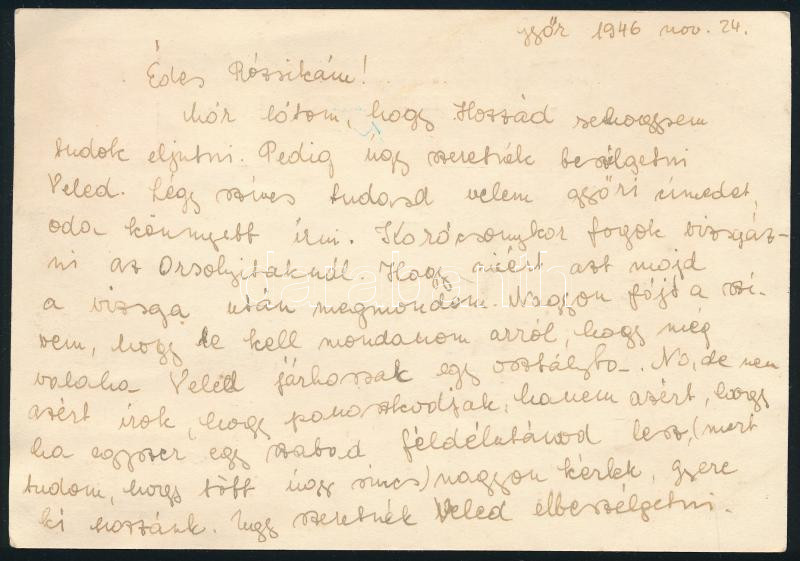 Győr 1946 nov. 24.
Édes Rózsikám!
Már látom, hogy Hozzád sehogysem
tudok eljutni. Pedig úgy szeretnék beszélgetni
Veled. Légy szíves tudasd velem győri címedet,
oda könnyebb írni. Karácsonykor fogok vizsgáz-
ni az Orsolyitáknál. Hogy miért azt majd
a vizsga után megmondom. Nagyon fájt a szí-
vem, hogy le kell mondanom arról, hogy még
valaha Veled járhassak egy osztályba. No, de nem
azért írok, hogy panaszkodjak, hanem azért, hogy
ha egyszer egy szabad féldélutánod lesz, (mert
tudom, hogy több úgy sincs) nagyon kérlek, gyere
ki hozzánk. Úgy szeretnék Veled elbeszélgetni.
darabanth